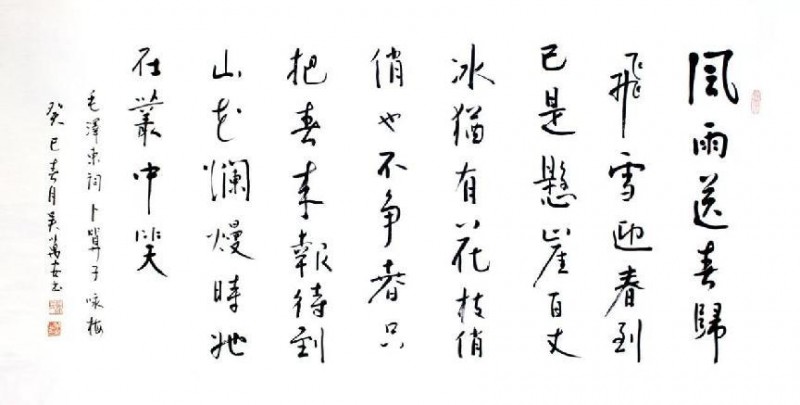 風雨送春歸
飛雪迎春到
已是懸崖百丈
冰猶有花枝俏
俏也不争春只
把春来報待到
山花瀾熳時她
在叢中笑
毛澤東詞卜算子咏梅
癸巳春月吴萬书